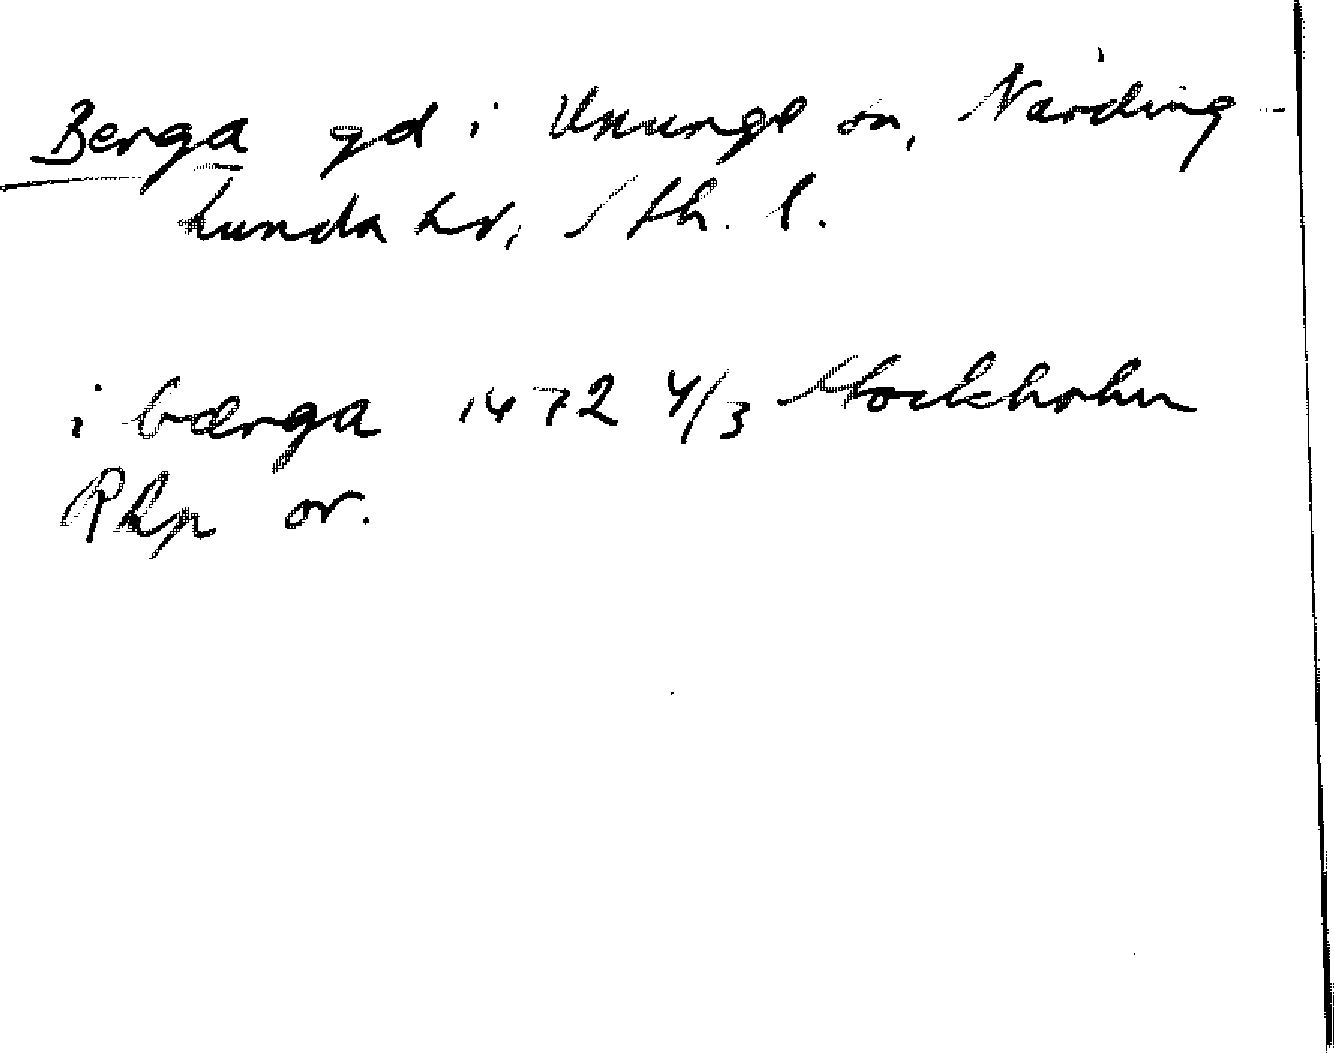 Berga gd i Ununge sn, Närding-
hundra hr, Sth. l.
i bærga 1472 4/3 Stockholm
Rhp or.